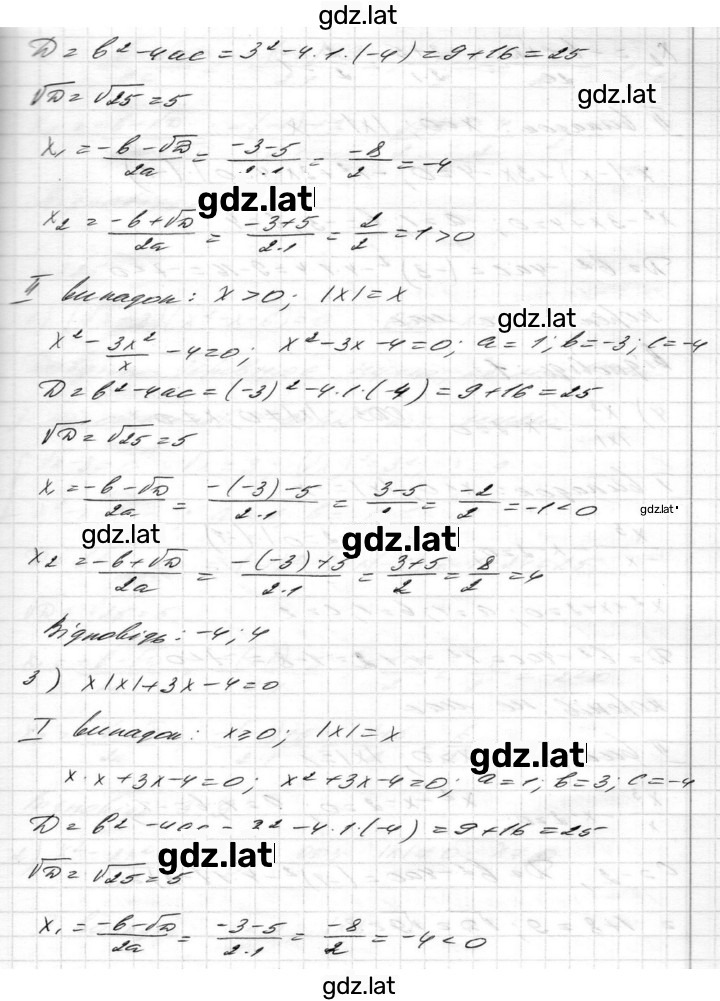 gdz.lat
D = b² - 4ac = 3² - 4·1·(-4) = 9 + 16 = 25
√D = √25 = 5
gdz.lat
x₁ = (-b - √D)/2a = (-3 - 5)/2·1 = -8/2 = -4
gdz.lat
x₂ = (-b + √D)/2a = (-3 + 5)/2·1 = 2/2 = 1 > 0
II випадок: x > 0; |x| = x
gdz.lat
x² - 3x²/x - 4 = 0; x² - 3x - 4 = 0; a = 1; b = -3; c = -4
D = b² - 4ac = (-3)² - 4·1·(-4) = 9 + 16 = 25
√D = √25 = 5
x₁ = (-b - √D)/2a = (-(-3) - 5)/2·1 = (3 - 5)/ = -2/2 = -1 < 0
gdz.lat
gdz.lat
gdz.lat
x₂ = (-b + √D)/2a = (-(-3) + 5)/2·1 = (3 + 5)/2 = 8/2 = 4
Відповідь: -4; 4
3) x|x| + 3x - 4 = 0
I випадок: x ≥ 0; |x| = x
gdz.lat
x·x + 3x - 4 = 0; x² + 3x - 4 = 0; a = 1; b = 3; c = -4
D = b² - 4ac - 3² - 4·1·(-4) = 9 + 16 = 25
gdz.lat
√D = √25 = 5
x₁ = (-b - √D)/2a = (-3 - 5)/2·1 = -8/2 = -4 < 0
gdz.lat